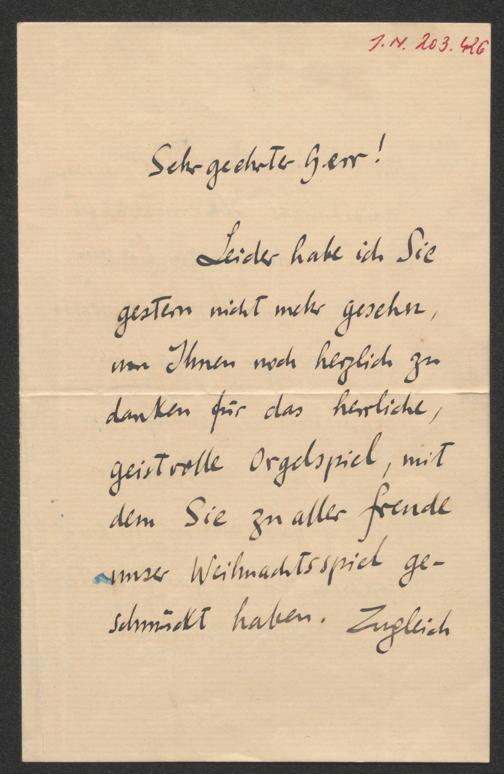 I.N. 203.426
Sehr geehrter Herr!
Leider habe ich Sie
gestern nicht mehr gesehn,
um Ihnen noch herzlich zu
danken für das herrliche,
geistvolle Orgelspiel, mit
dem Sie zu aller Freude
unser Weihnachtsspiel ge-
schmückt haben. Zugleich